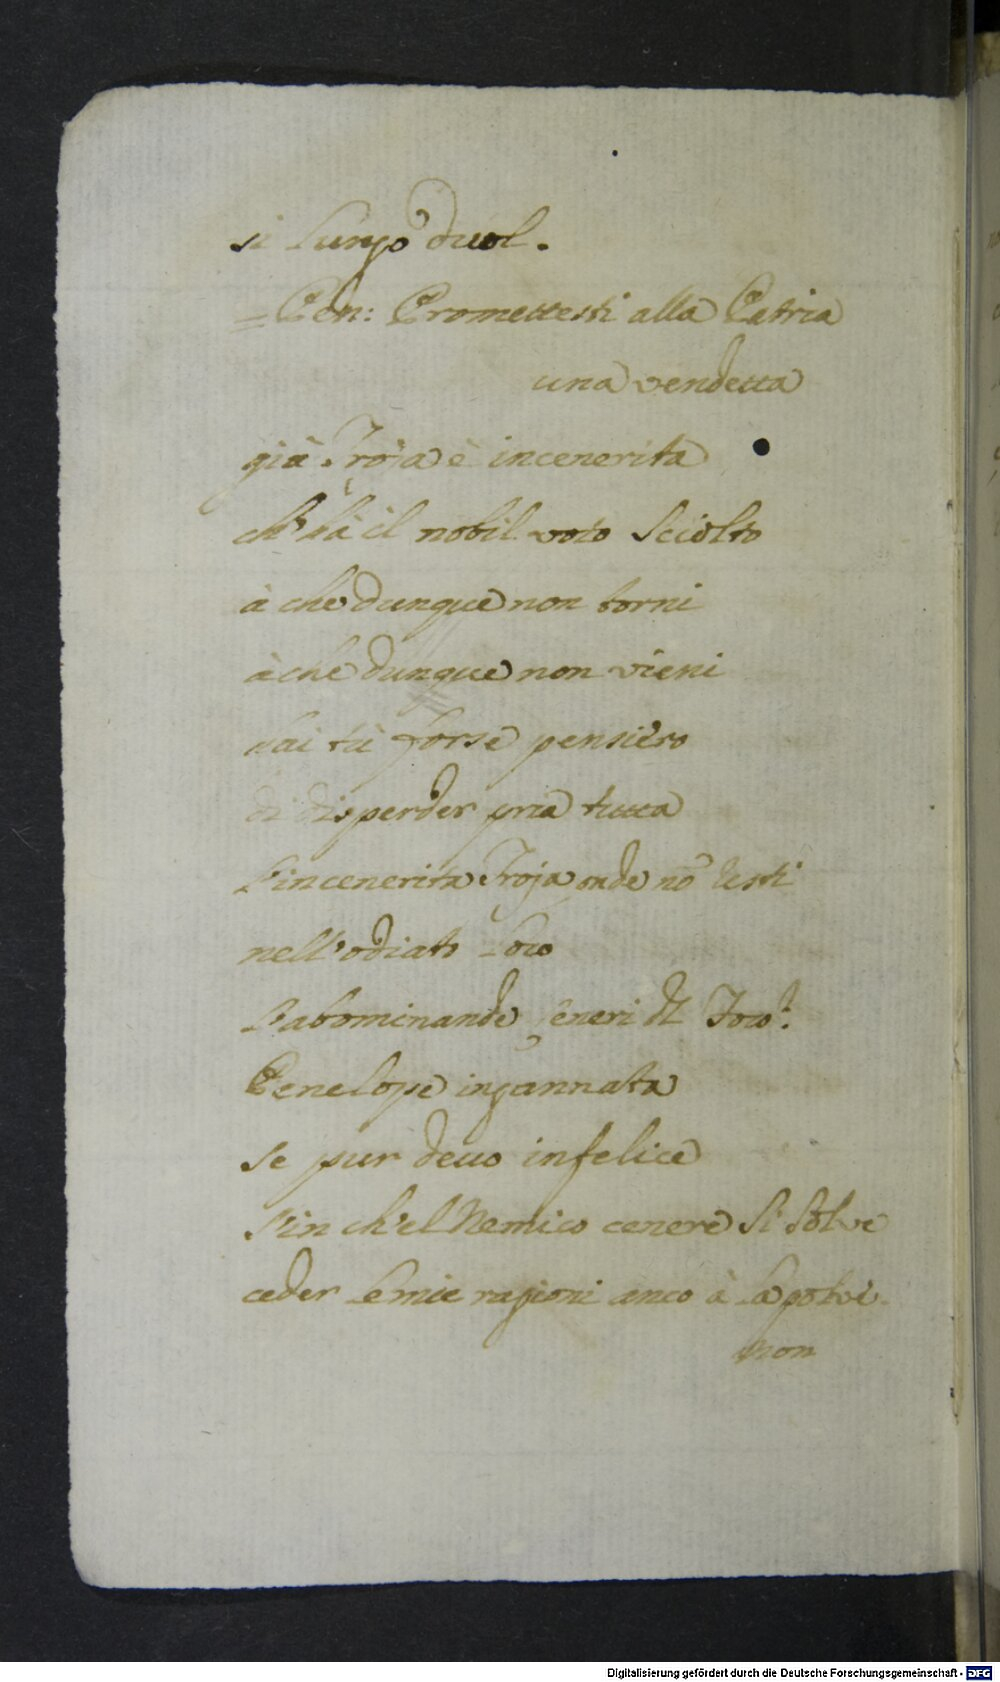 si lungo duol.
= Pen: Promettesti alla Patria
una vendetta
già Troja è incenerita
ch' hà il nobil voto sciolto
à che dunque non torni
à che dunque non vieni
hai tù forse pensiero
di disperder pria tutta
l'incenerita Troja onde nõ resti
nell'odiato loco
l'abominande ceneri del
Penelope ingannata
se pur deuo infelice
sin ch'el Nemico cenere si solve
ceder le mie ragioni anco à la polve.
non
Digitalisierung gefördert durch die Deutsche Forschungsgemeinschaft - DFG